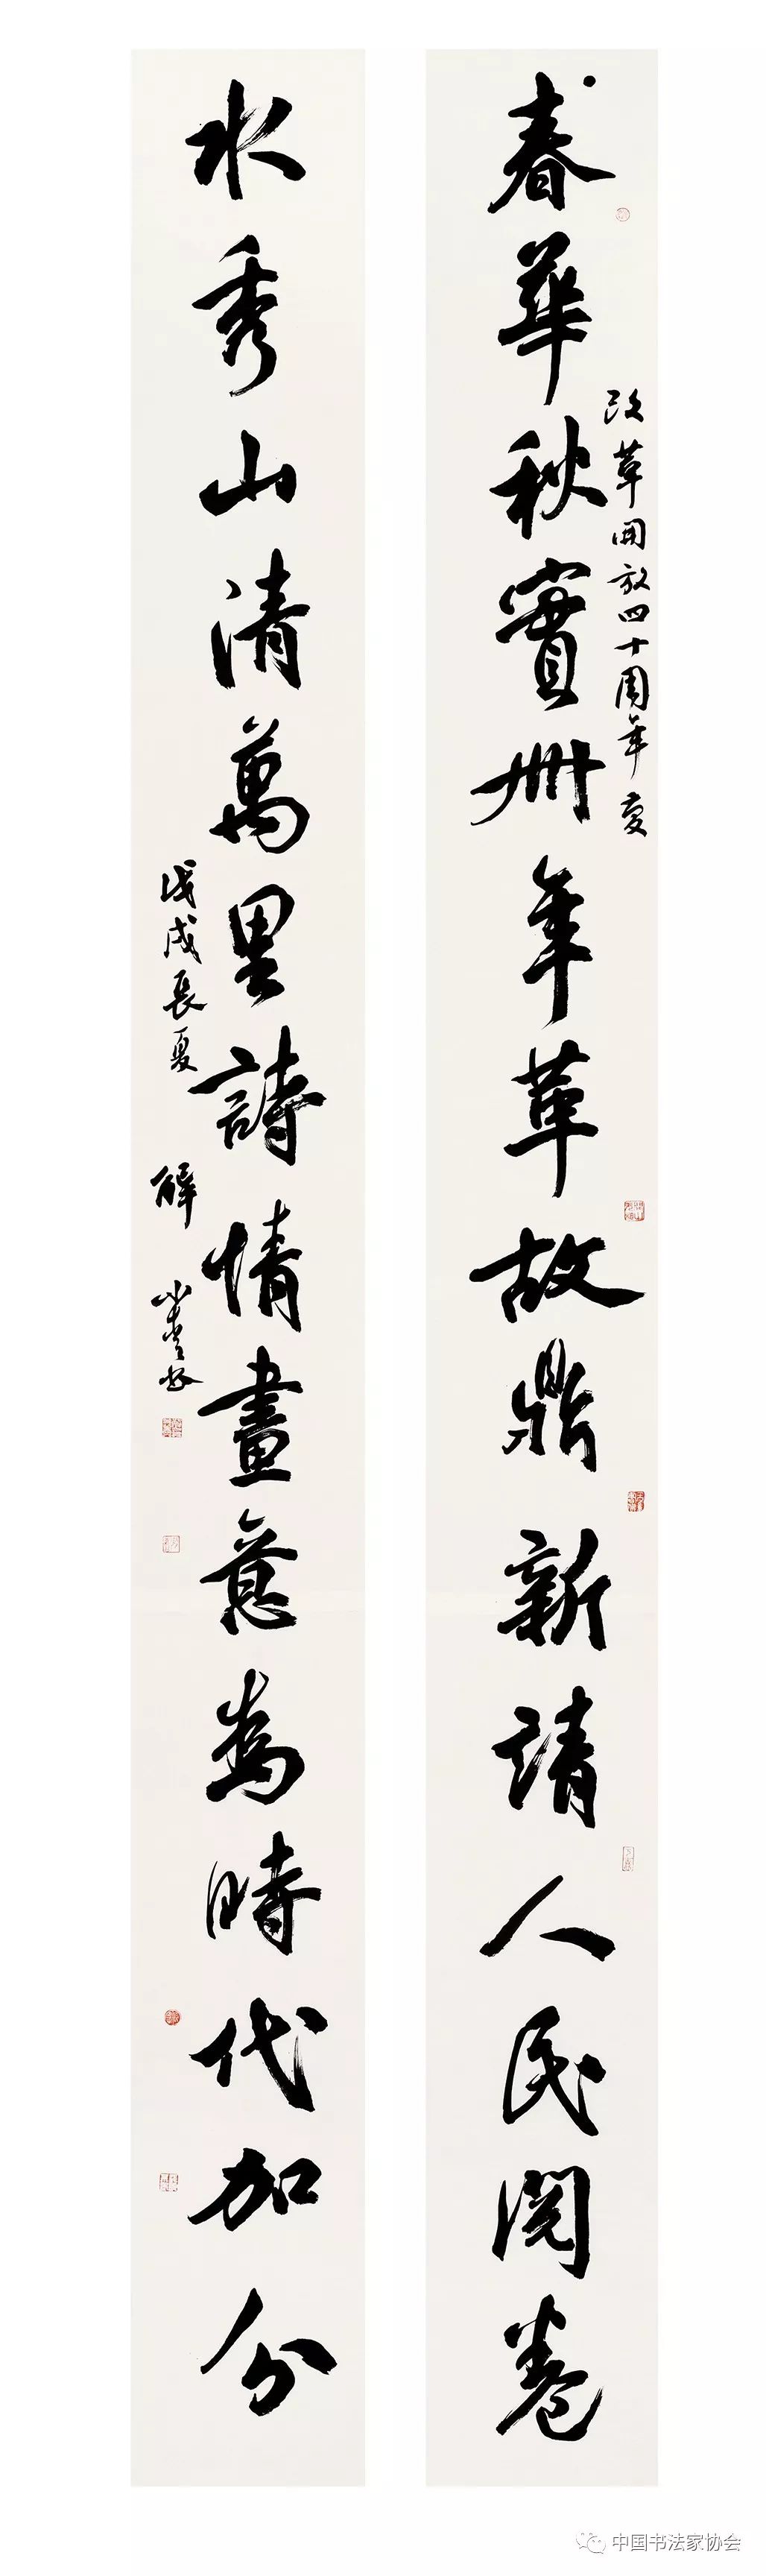 春華秋實卌年革故鼎新請人民閱卷
改革開放四十周年慶
水秀山清萬里詩情畫意為時代加分
戊戌長夏 解小青書
中国书法家协会